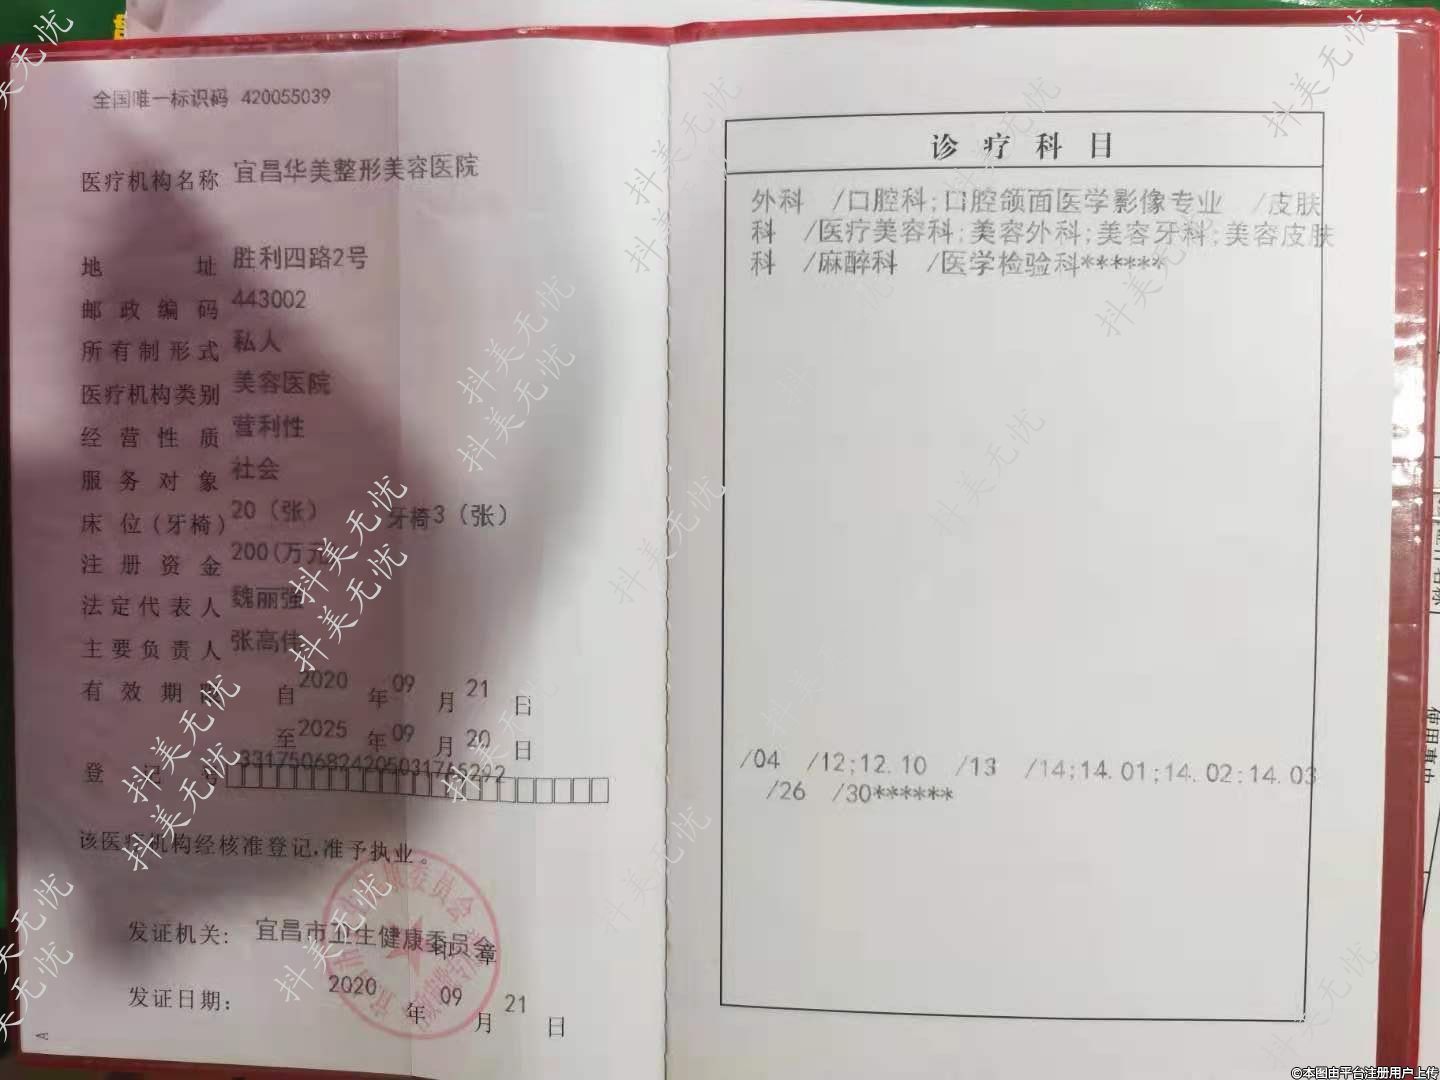 全国唯一标识码 420055039
医疗机构名称 宜昌华美整形美容医院
地址 胜利四路2号
邮政编码 443002
所有制形式 私人
医疗机构类别 美容医院
经营性质 营利性
服务对象 社会
床位(牙椅) 20（张） 牙椅3（张）
注册资金 200(万元
法定代表人 魏丽强
主要负责人 张高伟
有效期限 自2020年09月21日
至2025年09月20日
登记号 33175068242050317
该医疗机构经核准登记,准予执业。
发证机关: 宜昌市卫生健康委员会
印章
发证日期: 2020年09月21日
A
诊疗科目
外科 /口腔科;口腔颌面医学影像专业 /皮肤
科 /医疗美容科;美容外科;美容牙科;美容皮肤
科 /麻醉科 /医学检验科******
/04 /12;12.10 /13 /14;14.01;14.02;14.03
/26 /30******
使用
抖美无忧
©本图由平台注册用户上传